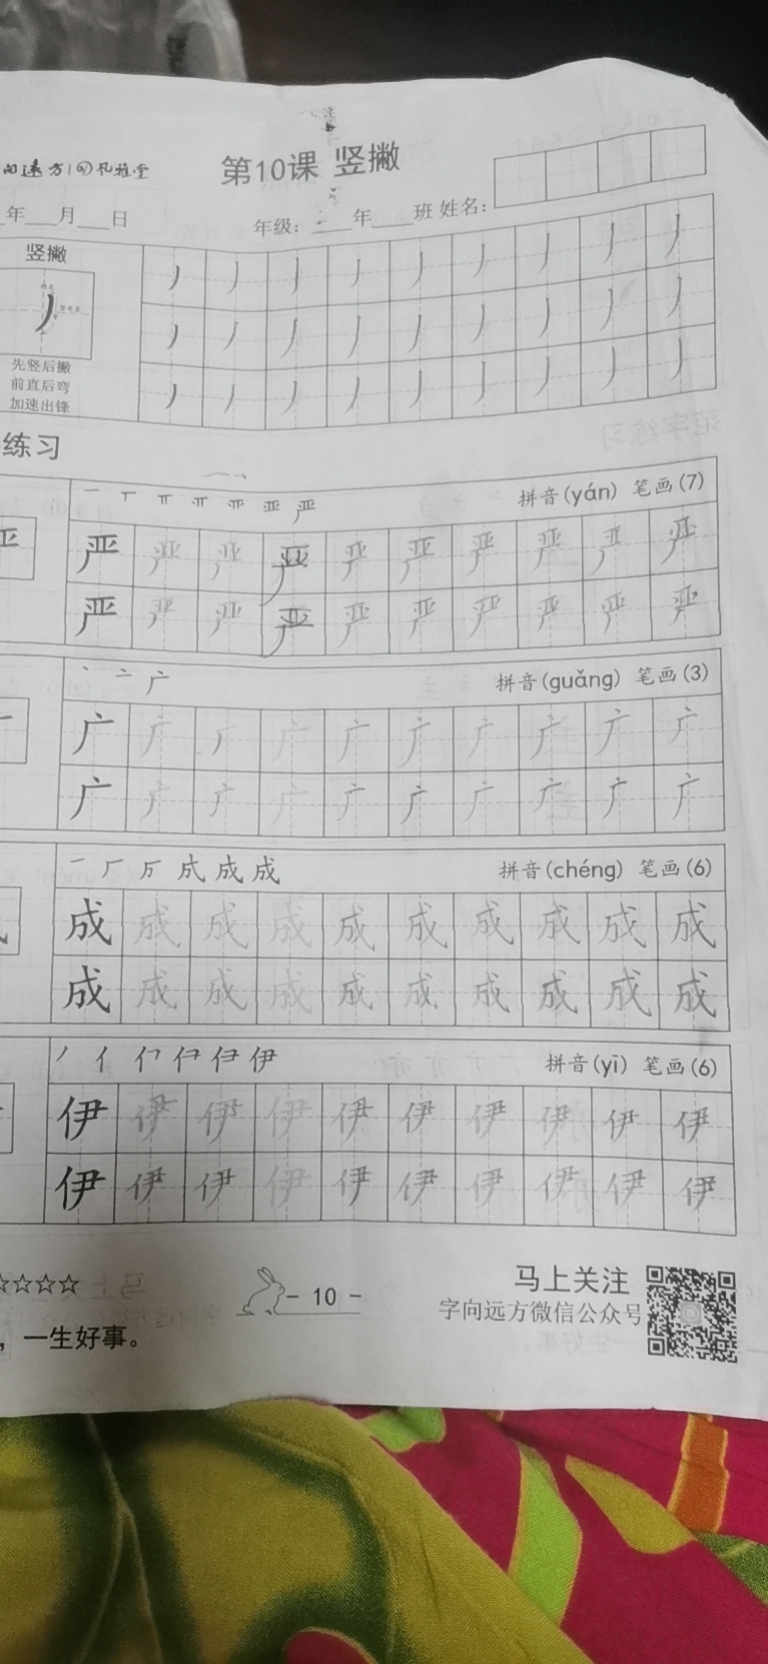 第10课 竖撇
年___月___日 年级：___年___班 姓名：
竖撇
丿丿丿丿丿丿丿丿丿
丿丿丿丿丿丿丿丿丿
丿丿丿丿丿丿丿丿丿
先竖后撇
前直后弯
加速出锋
练习
拼音(yán) 笔画(7)
严严严严严严严严严严
严严严严严严严严严严
拼音(guǎng) 笔画(3)
广广广广广广广广广广
广广广广广广广广广广
拼音(chéng) 笔画(6)
成成成成成成成成成成
成成成成成成成成成成
拼音(yī) 笔画(6)
伊伊伊伊伊伊伊伊伊伊
伊伊伊伊伊伊伊伊伊伊
☆☆☆☆
- 10 -
马上关注
字向远方微信公众号
，一生好事。